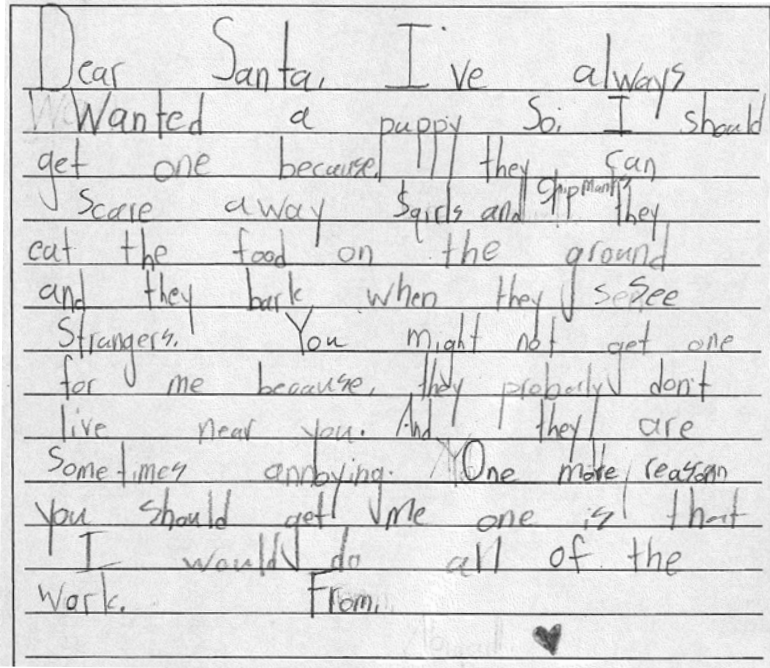 Dear Santa, I've always
Wanted a puppy So, I should
get one because, they can
Scare away Sqirls and Chipmants they
eat the food on the ground
and they bark when they See
Strangers. You might not get one
for me because, they probarly don't
live near you. And they are
Sometimes annoying. One more reason
you should get me one is that
I would do all of the
work. From,